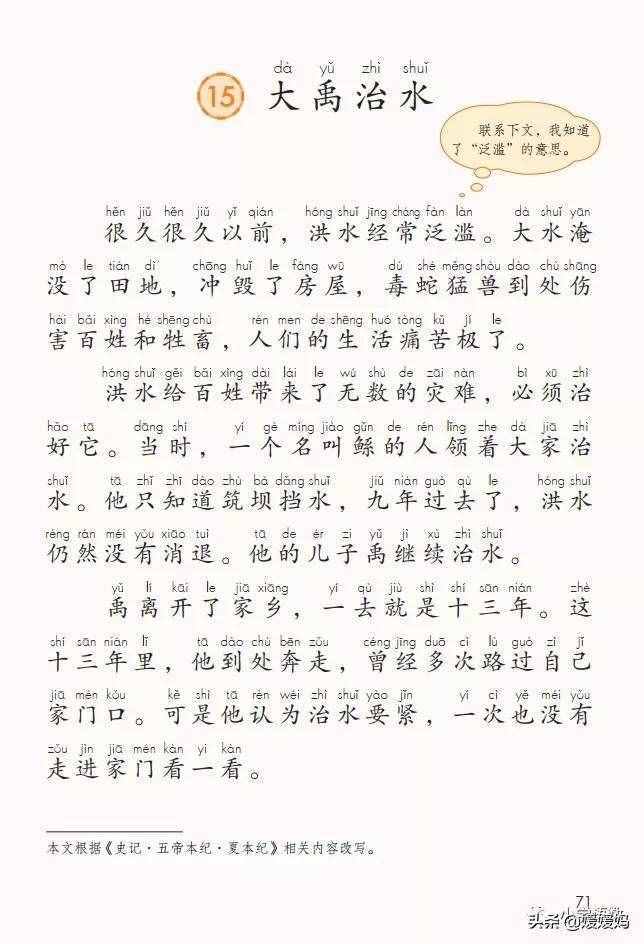 dà yǔ zhì shuǐ
15 大禹治水
联系下文，我知道
了“泛滥”的意思。
hěn jiǔ hěn jiǔ yǐ qián hóng shuǐ jīng cháng fàn làn dà shuǐ yān
很久很久以前，洪水经常泛滥。大水淹
mò le tián dì chōng huǐ le fáng wū dú shé měng shòu dào chù shāng
没了田地，冲毁了房屋，毒蛇猛兽到处伤
hài bǎi xìng hé shēng chù rén men de shēng huó tòng kǔ jí le
害百姓和牲畜，人们的生活痛苦极了。
hóng shuǐ gěi bǎi xìng dài lái le wú shù de zāi nàn bì xū zhì
洪水给百姓带来了无数的灾难，必须治
hǎo tā dāng shí yí gè míng jiào gǔn de rén lǐng zhe dà jiā zhì
好它。当时，一个名叫鲧的人领着大家治
shuǐ tā zhǐ zhī dào zhù bà dǎng shuǐ jiǔ nián guò qù le hóng shuǐ
水。他只知道筑坝挡水，九年过去了，洪水
réng rán méi yǒu xiāo tuì tā de ér zi yǔ jì xù zhì shuǐ
仍然没有消退。他的儿子禹继续治水。
yǔ lí kāi le jiā xiāng yí qù jiù shì shí sān nián zhè
禹离开了家乡，一去就是十三年。这
shí sān nián lǐ tā dào chù bēn zǒu céng jīng duō cì lù guò zì jǐ
十三年里，他到处奔走，曾经多次路过自己
jiā mén kǒu kě shì tā rèn wéi zhì shuǐ yào jǐn yí cì yě méi yǒu
家门口。可是他认为治水要紧，一次也没有
zǒu jìn jiā mén kàn yi kàn
走进家门看一看。
本文根据《史记·五帝本纪·夏本纪》相关内容改写。
71
头条 @嫒嫒妈